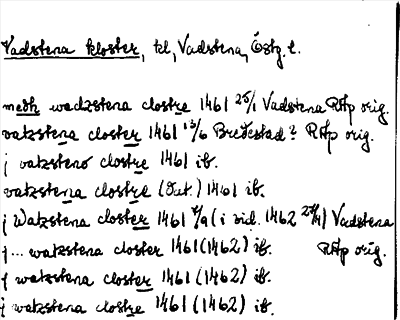 Vadstena kloster, kl, Vadstena, Östg. l.
medh wadzstena clostre 1461 25/1 Vadstena RAp orig.
vatzstena closter 1461 13/6 Bredestad? RAp orig.
j vatzsteno clostre 1461 ib.
vatzstena clostre (dat.) 1461 ib.
j Watzstena closter 1461 /9 (i vid. 1462 ) Vadstena
j... watzstena closter 1461 (1462) ib. RAp orig.
j watzstena closter 1461 (1462) ib.
j watzstena clostre 1461 (1462) ib.